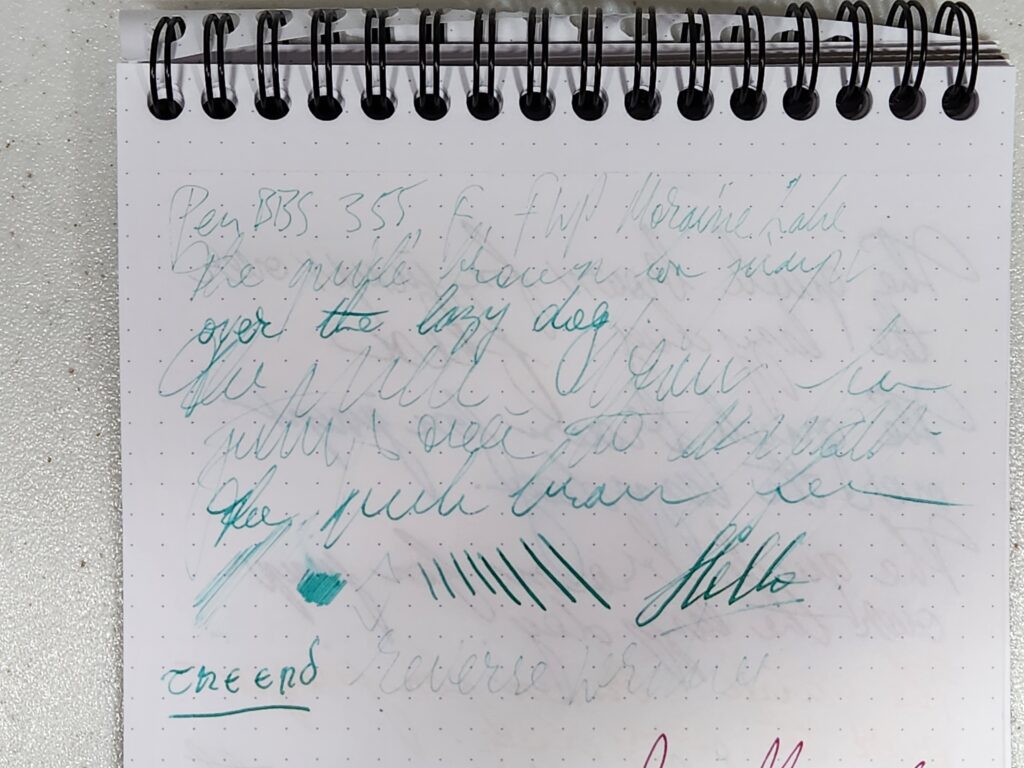 Pen BBS 355, F, FWP Moraine Lake
The quick brown fox jumps
over the lazy dog
The quick brown fox
jumps over
The quick brown fox
Hello
THE END Reverse writing